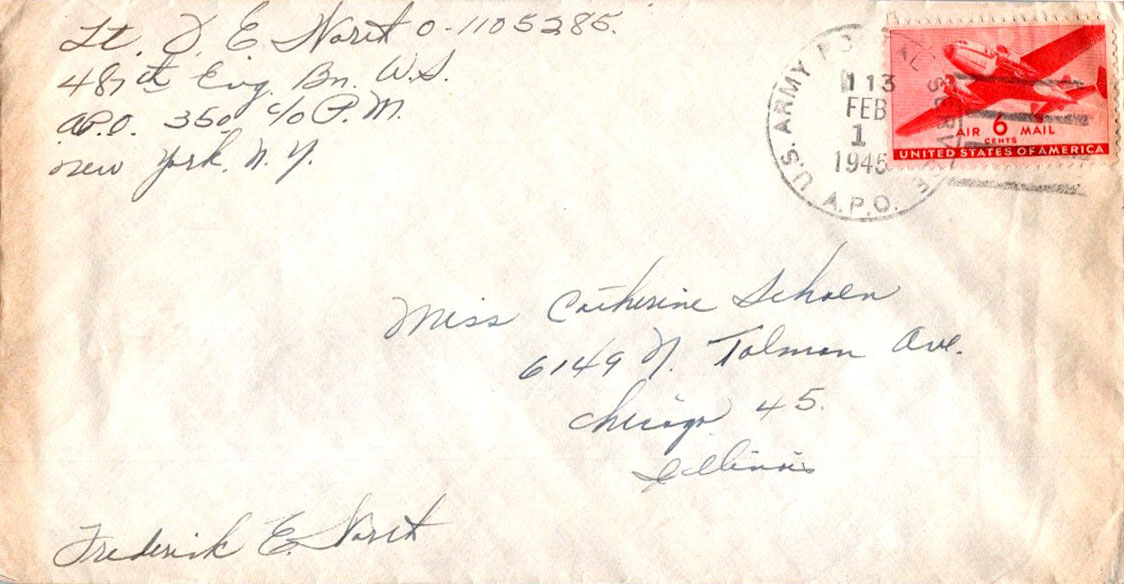 Lt. F. E. Norst O-1105285.
487th Eng. Bn. W.S.
A.P.O. 350 c/o P.M.
New York, N.Y.
U.S. ARMY POSTAL SERVICE
113
FEB
1
1945
A.P.O.
AIR 6 MAIL
CENTS
UNITED STATES OF AMERICA
Miss Catherine Schoen
6149 N. Talman Ave.
Chicago 45.
Illinois
Frederick E. Norst